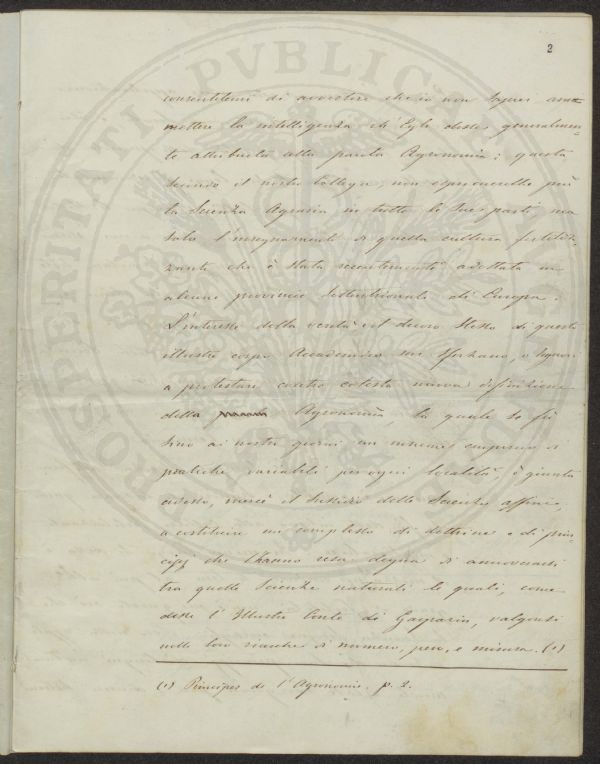 2
consentitemi di avvertire ch'io non saprei am-
mettere la intelligenza ch'Egli disse generalmen-
te attribuita alla parola Agronomia; questa
secondo il nostro collega, non esprimerebbe più
la Scienza Agraria in tutte le sue parti ma
solo l'insegnamento di quella cultura fertiliz-
zante che è stata recentemente adottata in
alcune provincie settentrionali di Europa.
L'interesse della verità e il decoro stesso di questo
illustre corpo Accademico mi sforzano, o Signori
a protestare contro cotesta nuova definizione
della Agronomia, la quale se fu
sino ai nostri giorni un insieme empirico di
pratiche variabili per ogni località, è giunta
adesso, mercè il sussidio delle Scienze affini,
a costituire un complesso di dottrine e di prin-
cipj che l'hanno resa degna di annoverarsi
tra quelle Scienze naturali le quali, come
disse l'Illustre Conte di Gasparin, valgonsi
nelle loro ricerche di numero, peso, e misura. (1)
(1) Principes de l'Agronomie. p. 2.
PROSPERITATI PVBLICAE